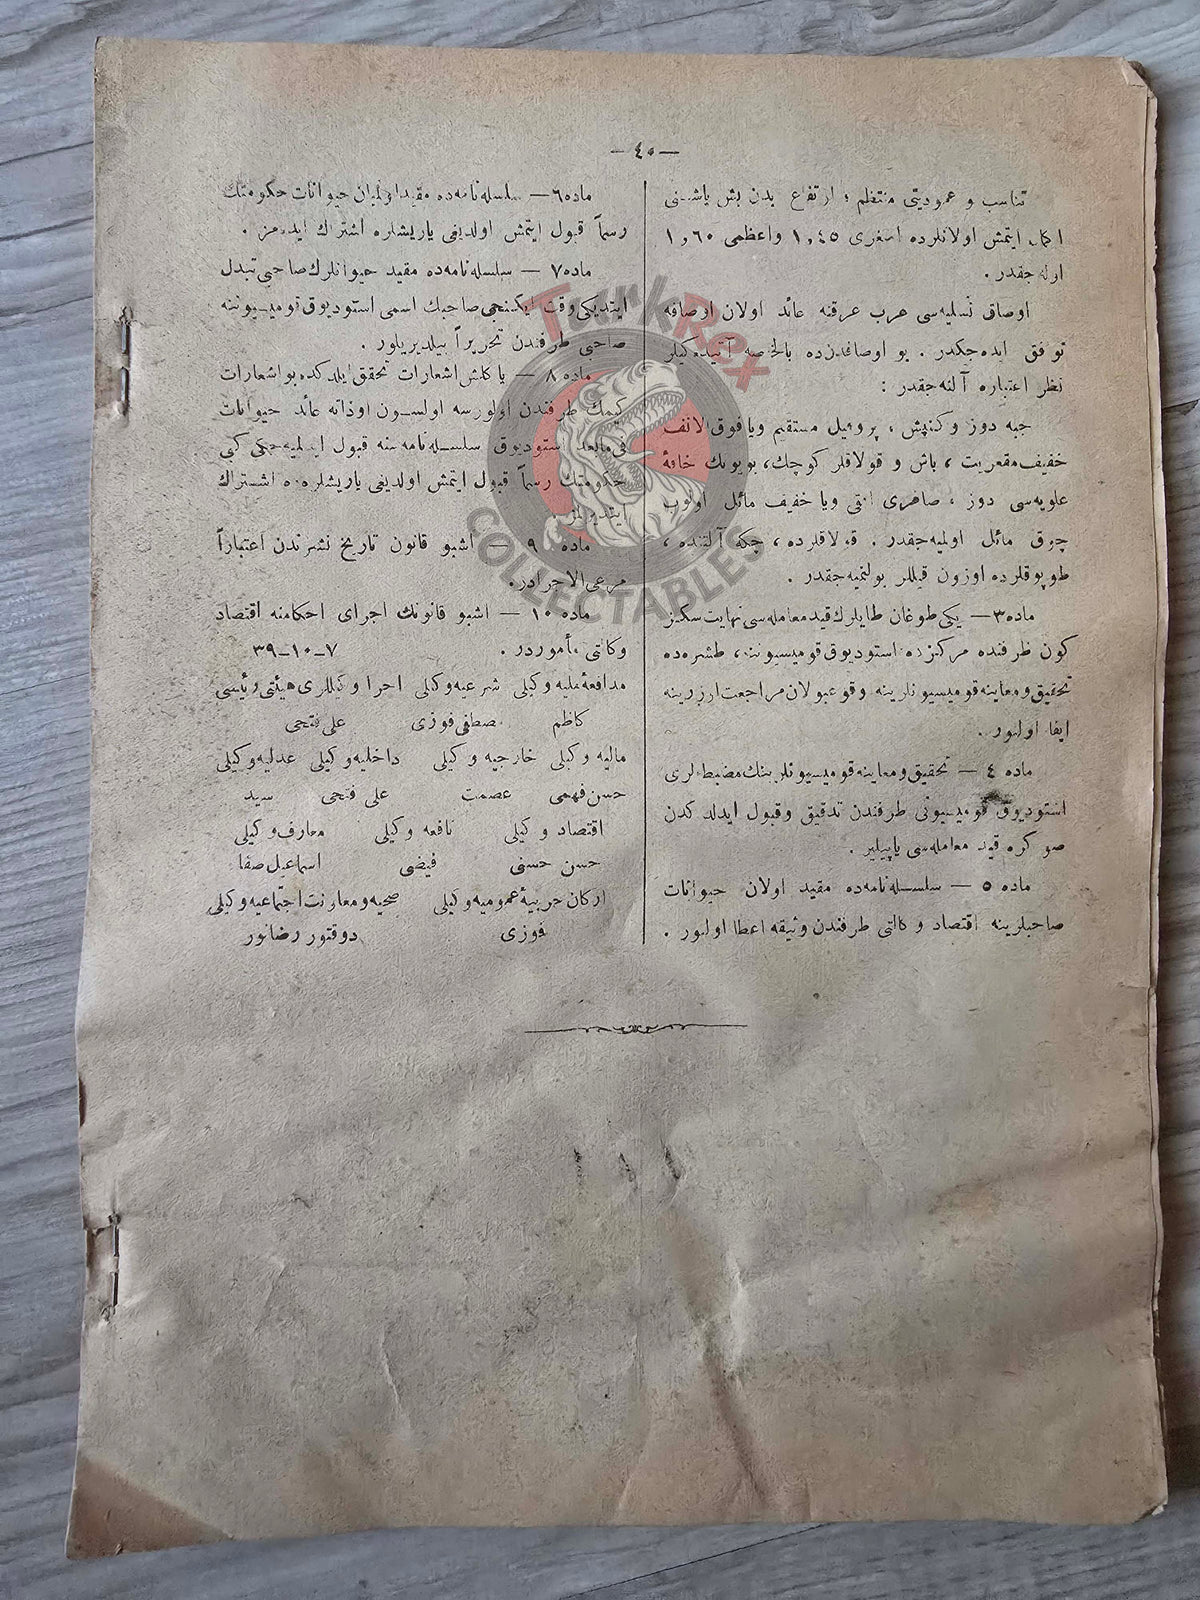 — ٤٠ —
تناسب و عمودیتی منتظم ؛ ارتفاع بدن بش یاشنی
اكمال ایتمش اولانلرده اصغری ١,٤٥ واعظمی ١,٦٠
اوله جقدر .
اوصاف نسلیه‌سی عرب عرقنه عائد اولان اوصافه
توافق ایده‌جكدر . بو اوصافدن‌ده بالخاصه آتیده‌كیلر
نظر اعتباره آلنه‌جقدر :
جبهه دوز وكنیش ، پروفیل مستقیم ویا فوق‌الانف
خفیف مقعریت ، باش و قولاقلر كوچك ، بویونك حافهٔ
علویه‌سی دوز ، صاغری افقی ویا خفیف مائل اولوب
چوق مائل اولمیه‌جقدر . قولاقلرده ، چكه آلتنده ،
طوپوقلرده اوزون قیللر بولنمیه‌جقدر .
ماده ٣ — یكی طوغان طایلرك قید معامله‌سی نهایت سكیز
كون ظرفنده مركزده استودبوق قومیسیوننه ، طشره‌ده
تحقیق و معاینه قومیسیونلرینه وقوعبولان مراجعت اوزرینه
ایفا اولنور .
ماده ٤ — تحقیق و معاینه قومیسیونلرینك مضبطه‌لری
استودبوق قومیسیونی طرفندن تدقیق وقبول ایدلدكدن
صوكره قید معامله‌سی یاپیلیر .
ماده ٥ — سلسله‌نامه‌ده مقید اولان حیوانات
صاحبلرینه اقتصاد وكالتی طرفندن وثیقه اعطا اولنور .
ماده ٦ — سلسله‌نامه‌ده مقید اولمیان حیوانات حكومتك
رسماً قبول ایتمش اولدیغی یاریشلره اشتراك ایده‌مز .
ماده ٧ — سلسله‌نامه‌ده مقید حیوانلرك صاحبی تبدل
ایتدیكی وقت ایكنجی صاحبك اسمی استودبوق قومیسیوننه
صاحبی طرفندن تحریراً بیلدیریلور .
ماده ٨ — یاكلش اشعارات تحقق ایلدكده بو اشعارات
كیمك طرفندن اولورسه اولسون او ذاته عائد حیوانات
فی‌مابعد استودبوق سلسله‌نامه‌سنه قبول ایدلمیه‌جكی كبی
حكومتك رسماً قبول ایتمش اولدیغی یاریشلره‌ده اشتراك
ایتدیرلمز .
ماده ٩ — اشبو قانون تاریخ نشرندن اعتباراً
مرعی‌الاجرادر .
ماده ١٠ — اشبو قانونك اجرای احكامنه اقتصاد
وكالتی مأموردر . ٧-١٠-٣٩
مدافعهٔ ملیه وكیلی شرعیه وكیلی اجرا وكیللری هیئتی رئیسی
كاظم مصطفی فوزی علی فتحی
مالیه وكیلی خارجیه وكیلی داخلیه وكیلی عدلیه وكیلی
حسن فهمی عصمت علی فتحی سید
اقتصاد وكیلی نافعه وكیلی معارف وكیلی
حسن حسنی فیضی اسماعیل صفا
اركان حربیهٔ عمومیه وكیلی صحیه و معاونت اجتماعیه وكیلی
فوزی دوقتور رضانور
TurkRex
COLLECTABLES